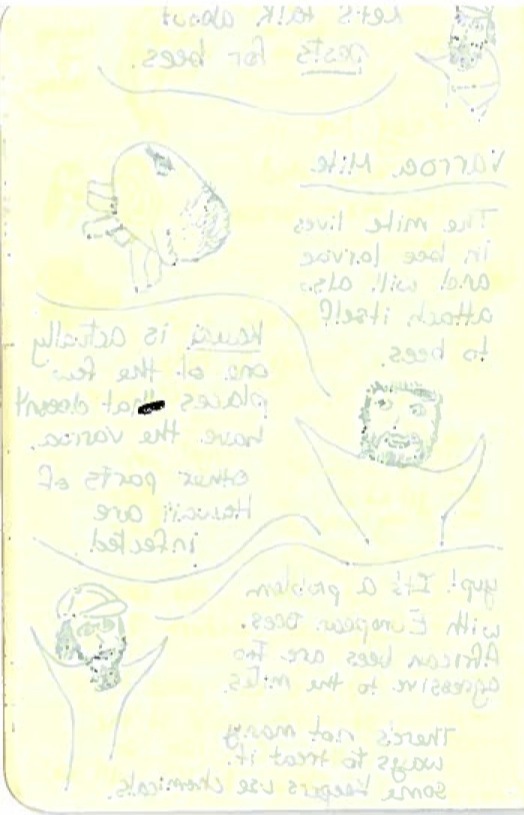 Let's talk about
pests for bees.
Varroa Mite.
The mite lives
in bee larvae
and will also
attach itself
to bees.
Kauai is actually
one of the few
places that doesn't
have the varroa.
other parts of
Hawaii are
infected
yup! It's a problem
with European bees.
African bees are too
agressive to the mites.
There's not many
ways to treat it.
some keepers use chemicals.